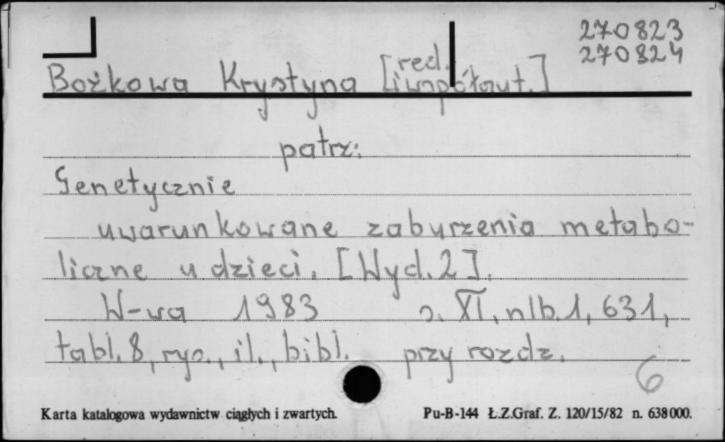 270823
270824
Bożkowa Krystyna [red. i współaut.]
patrz:
Genetycznie
uwarunkowane zaburzenia metabo-
liczne u dzieci. [Wyd. 2].
W-wa 1983 s. XI, nlb. 1, 631,
tabl. 8, rys., il., bibl. przy rozdz.
6
Karta katalogowa wydawnictw ciągłych i zwartych. Pu-B-144 Ł.Z.Graf. Z. 120/15/82 n. 638000.